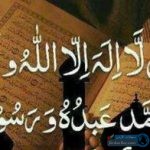 لَا إِلٰهَ إِلَّا اللّٰهُ وَ
عَبْدُهُ وَرَسُو